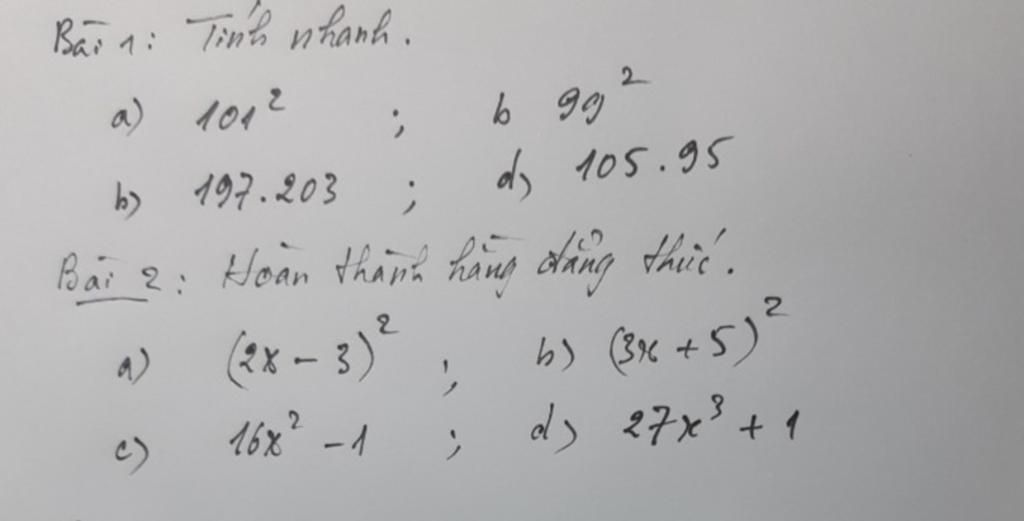 Bài 1: Tính nhanh.
a) 101² ; b 99²
b) 197.203 ; d) 105.95
Bài 2: Hoàn thành hằng đẳng thức.
a) (2x - 3)² ; b) (3x + 5)²
c) 16x² - 1 ; d) 27x³ + 1